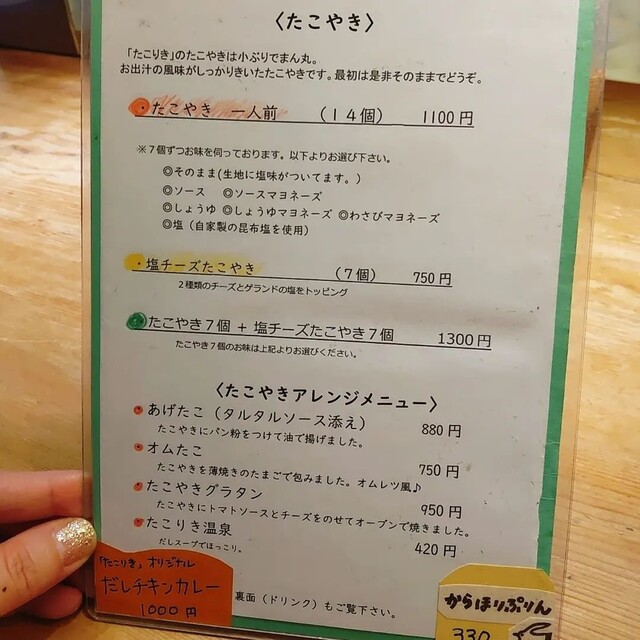 〈たこやき〉
「たこりき」のたこやきは小ぶりでまん丸。
お出汁の風味がしっかりきいたたこやきです。最初は是非そのままでどうぞ。
・たこやき 一人前 (１４個) 1100円
※７個ずつお味を伺っております。以下よりお選び下さい。
◎そのまま(生地に塩味がついてます。)
◎ソース ◎ソースマヨネーズ
◎しょうゆ ◎しょうゆマヨネーズ ◎わさびマヨネーズ
◎塩（自家製の昆布塩を使用）
・塩チーズたこやき (７個) 750円
２種類のチーズとゲランドの塩をトッピング
たこやき７個 + 塩チーズたこやき７個 1300円
たこやき７個のお味は上記よりお選びください。
〈たこやきアレンジメニュー〉
あげたこ（タルタルソース添え） 880円
たこやきにパン粉をつけて油で揚げました。
オムたこ 750円
たこやきを薄焼きのたまごで包みました。オムレツ風♪
たこやきグラタン 950円
たこやきにトマトソースとチーズをのせてオーブンで焼きました。
たこりき温泉 420円
だしスープでほっこり。
「たこりき」オリジナル
だしチキンカレー
1000円
裏面（ドリンク）もご覧下さい。
からほりぷりん
330